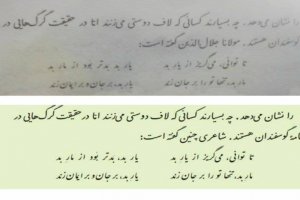 را نشان می‌دهد. چه بسیارند کسانی که لاف دوستی می‌زنند امّا در حقیقت گرگ‌هایی در
گوسفندان هستند. مولانا جلال‌الدّین گفته است:
تا توانی، می‌گریز از یار بد یار بد بدتر بود از مار بد
مار بد، تنها تو را بر جان زند یار بد بر جان و بر ایمان زند
را نشان می‌دهد. چه بسیارند کسانی که لاف دوستی می‌زنند امّا در حقیقت گرگ‌هایی در
جامهٔ گوسفندان هستند. شاعری چنین گفته است:
تا توانی، می‌گریز از یار بد یار بد، بدتر بود از مار بد
مار بد، تنها تو را بر جان زند یار بد، بر جان و بر ایمان زند